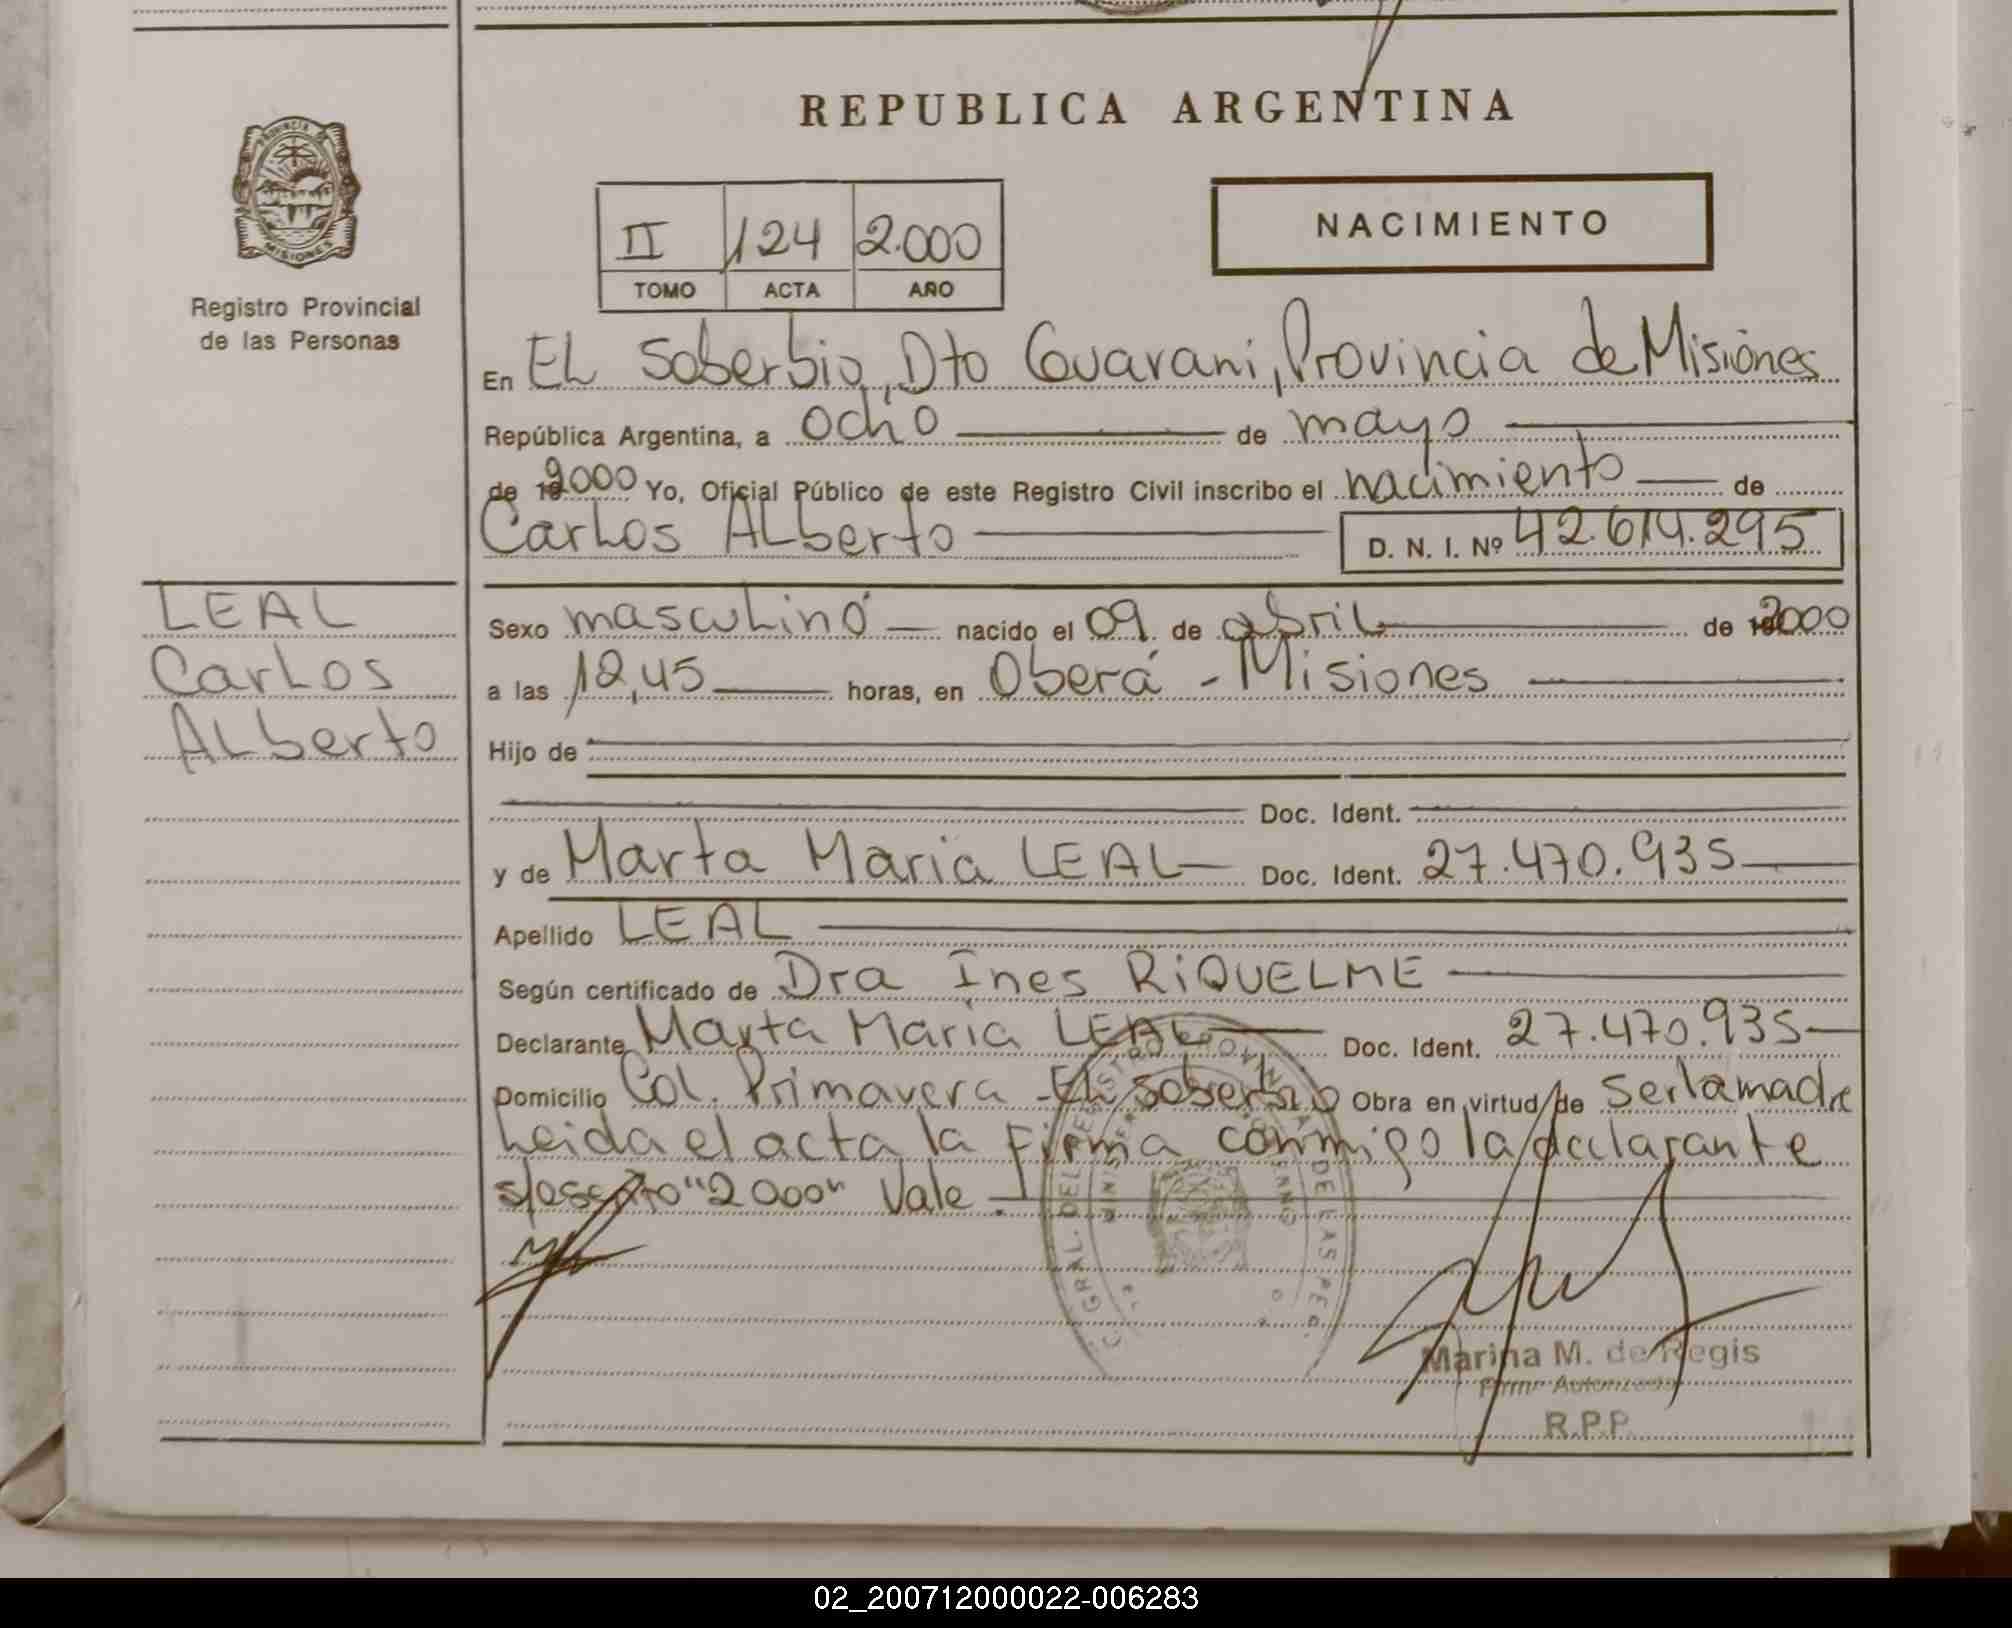 REPUBLICA ARGENTINA
PROVINCIA DE
MISIONES
Registro Provincial
de las Personas
II 124 2.000
TOMO ACTA AÑO
NACIMIENTO
En EL Soberbio, Dto Guarani, Provincia de Misiones
República Argentina, a ocho de mayo
de 2000 Yo, Oficial Público de este Registro Civil inscribo el nacimiento de
Carlos ALberto D. N. I. Nº 42.614.295
LEAL
Carlos
ALberto
Sexo masculino nacido el 09 de abril de 2000
a las 12,45 horas, en Oberá - Misiones
Hijo de
Doc. Ident.
y de Marta Maria LEAL Doc. Ident. 27.470.935
Apellido LEAL
Según certificado de Dra Ines RIQUELME
Declarante Marta Maria LEAL Doc. Ident. 27.470.935
Domicilio Col. Primavera - EL Soberbio Obra en virtud de ser la madre
Leida el acta la firma conmigo la declarante
"2000" Vale.
GRAL. DEL DE LAS PER
Marina M. de Regis
Firma Autorizada
R.P.P.
02_200712000022-006283